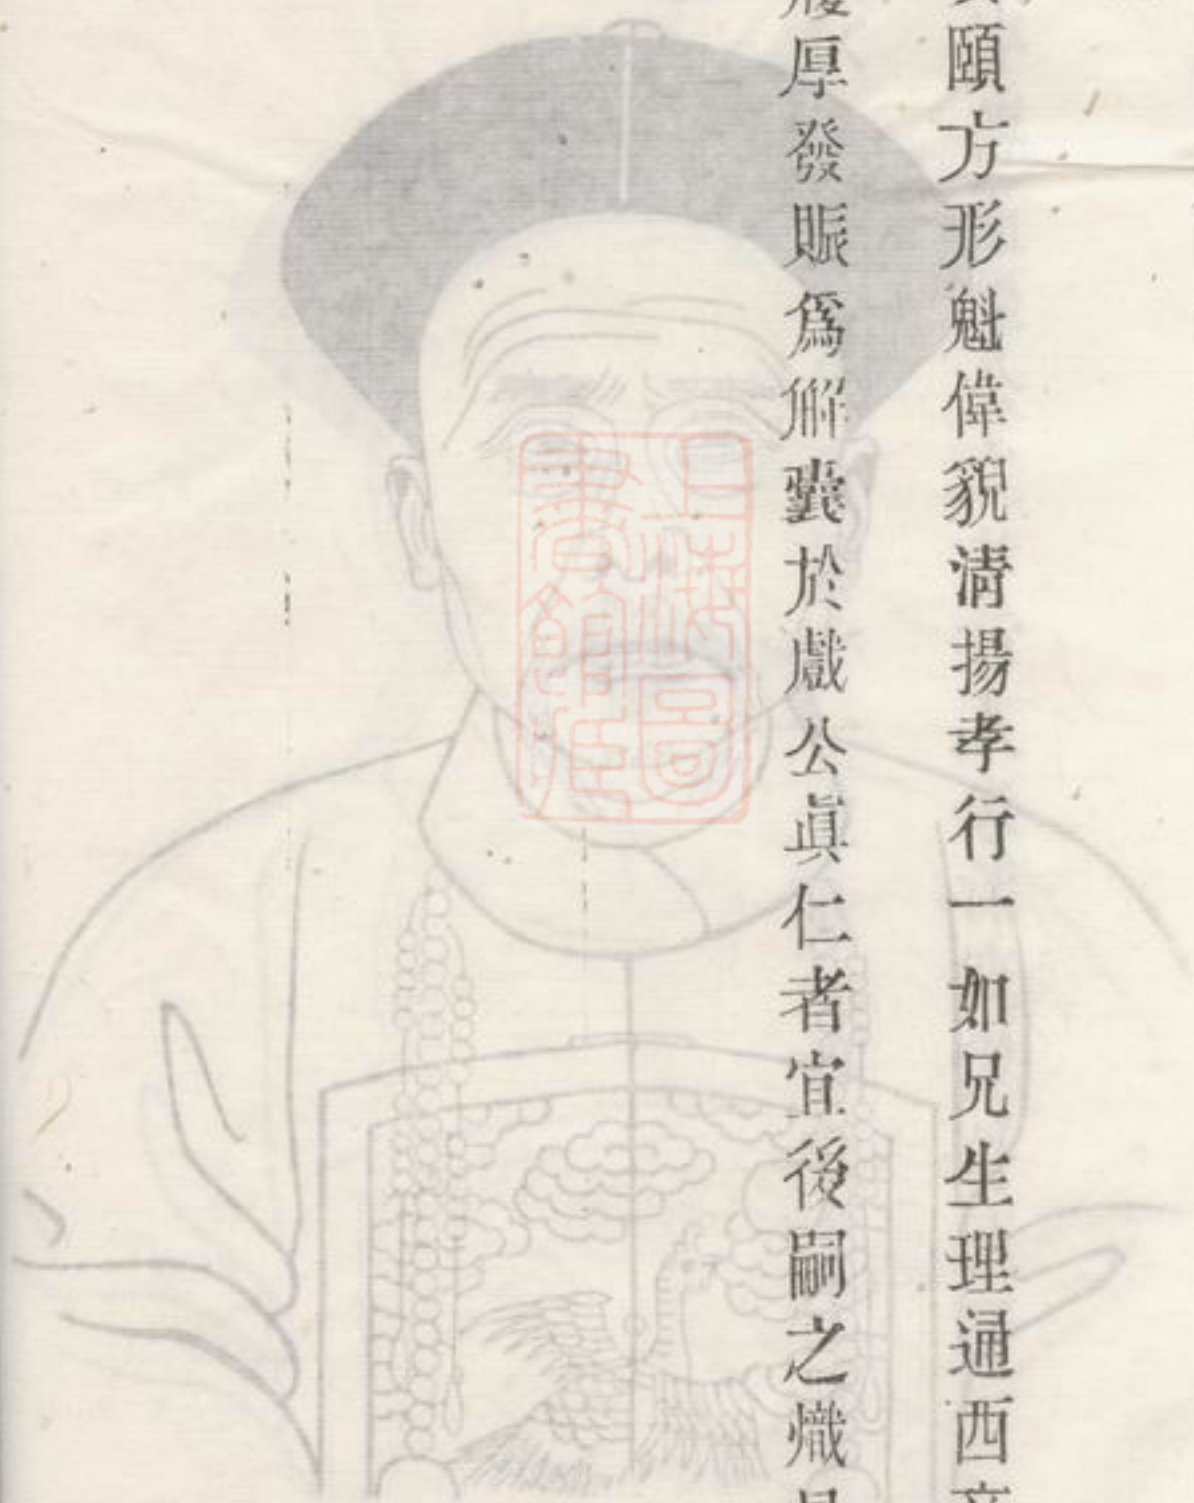 頤方形魁偉貌清揚孝行一如兄生理通西
厚發賑爲解囊於戲公眞仁者宜後嗣之熾
上海圖書館藏